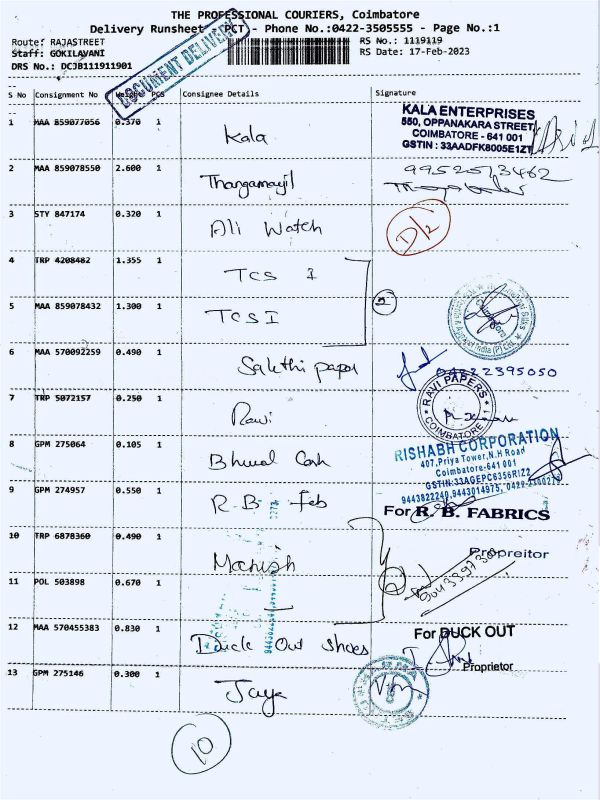 THE PROFESSIONAL COURIERS, Coimbatore
Delivery Runsheet (PCT) - Phone No.:0422-3505555 - Page No.:1
Route: RAJASTREET RS No.: 1119119
Staff: GOKILAVANI RS Date: 17-Feb-2023
DRS No.: DCJB111911901
DOCUMENT DELIVERY
S No Consignment No Weight PCS Consignee Details Signature
1 MAA 859077056 0.370 1 Kala
KALA ENTERPRISES
550, OPPANAKARA STREET
COIMBATORE - 641 001
GSTIN : 33AADFK8005E1ZT
2 MAA 859078550 2.600 1 Thangamayil 9952513462
3 STY 847174 0.320 1 Ali Watch D/2
4 TRP 4208482 1.355 1 TCS I
2
5 MAA 859078432 1.300 1 TCS I
6 MAA 570092259 0.490 1 Sakthi paper 04222395050
7 TRP 5072157 0.250 1 Ravi
RAVI PAPERS
COIMBATORE - 1
8 GPM 275064 0.105 1
RISHABH CORPORATION
407, Priya Tower, N.H Road
Coimbatore-641 001
GSTIN:33AGEPC6356R1Z2
9443822240, 9443014975,
9 GPM 274957 0.550 1 R.B Feb
For R. B. FABRICS
10 TRP 6878360 0.490 1 Manish
Propreitor
11 POL 503898 0.670 1
2
12 MAA 570455383 0.830 1 Duck Out Shoes
For DUCK OUT
Proprietor
13 GPM 275146 0.300 1 Jaya
10